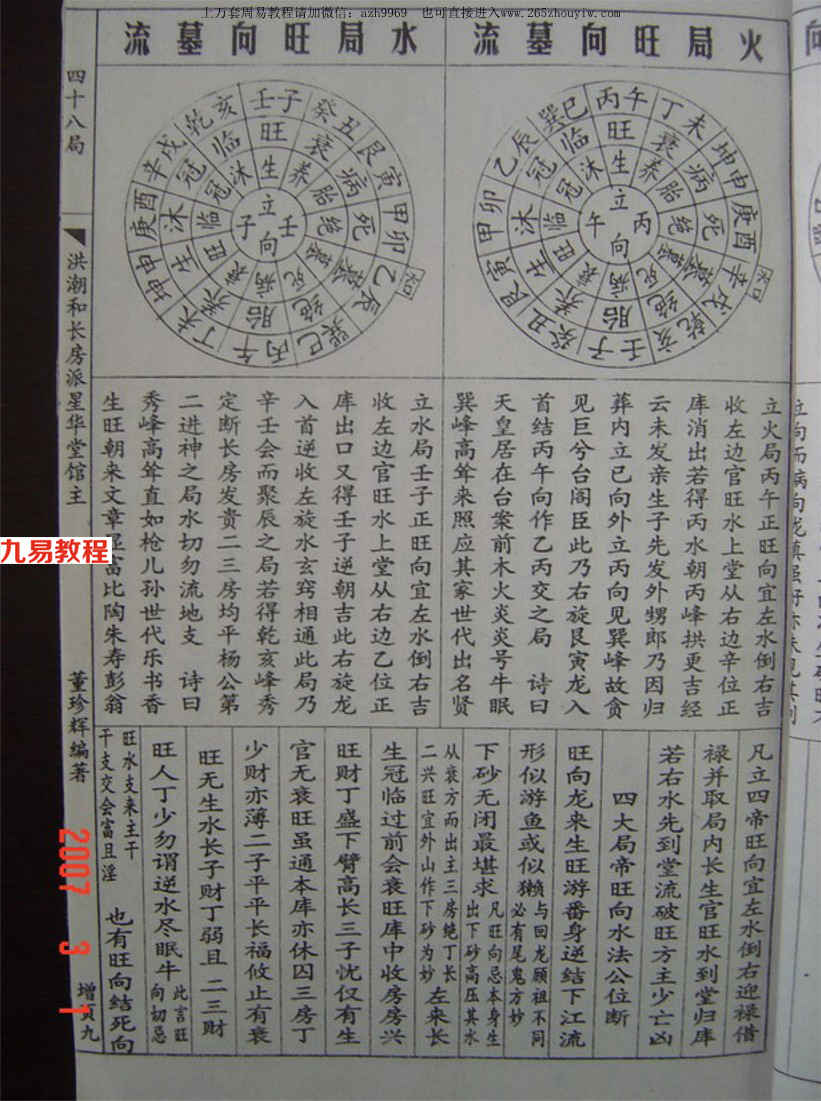 上万套周易教程请加微信：azh9969　也可直接进入www.265zhouyiw.com
火局旺向墓流
水局旺向墓流
四十八局
洪潮和长房派星华堂馆主
董珍辉编著
增页九
九易教程
2007 3 1
丙午
丁未
坤申
庚酉
辛戌
乾亥
壬子
癸丑
艮寅
甲卯
乙辰
巽巳
旺
衰
病
死
墓
绝
胎
养
生
沐
冠
临
生
养
胎
绝
墓
死
病
衰
旺
临
冠
沐
立丙向午
水口
壬子
癸丑
艮寅
甲卯
乙辰
巽巳
丙午
丁未
坤申
庚酉
辛戌
乾亥
旺
衰
病
死
墓
绝
胎
养
生
沐
冠
临
生
养
胎
绝
墓
死
病
衰
旺
临
冠
沐
立壬向子
水口
立火局丙午正旺向宜左水倒右吉
收左边官旺水上堂从右边辛位正
库消出若得丙水朝丙峰拱更吉经
云未发亲生子先发外甥郎乃因归
葬内立巳向外立丙向见巽峰故贪
见巨兮台阁臣此乃右旋艮寅龙入
首结丙午向作乙丙交之局　诗曰
天皇居在台案前木火炎炎号牛眠
巽峰高耸来照应其家世代出名贤
立水局壬子正旺向宜左水倒右吉
收左边官旺水上堂从右边乙位正
库出口又得壬子逆朝吉此右旋龙
入首逆收左旋水玄窍相通此局乃
辛壬会而聚辰之局若得乾亥峰秀
定断长房发贵二三房均平杨公第
二进神之局水切勿流地支　诗曰
秀峰高耸直如枪儿孙世代乐书香
生旺朝来文章显富比陶朱寿彭翁
凡立四帝旺向宜左水倒右迎禄借
禄并取局内长生官旺水到堂归库
若右水先到堂流破旺方主少亡凶
四大局帝旺向水法公位断
旺向龙来生旺游番身逆结下江流
形似游鱼或似獭与回龙顾祖不同必有尾鬼方妙
下砂无闭最堪求凡旺向忌本身生出下砂高压其水
从衰方而出主三房绝丁长二兴旺宜外山作下砂为妙　左来长
生冠临过前会衰旺库中收房房兴
旺财丁盛下臂高长三子忱仅有生
官无衰旺虽通本库亦休囚三房丁
少财亦薄二子平平长福攸止有衰
旺无生水长子财丁弱且　二三财
旺人丁少勿谓逆水尽眠牛此言旺向切忌
旺水支来主干干支交会富且淫　也有旺向结死向